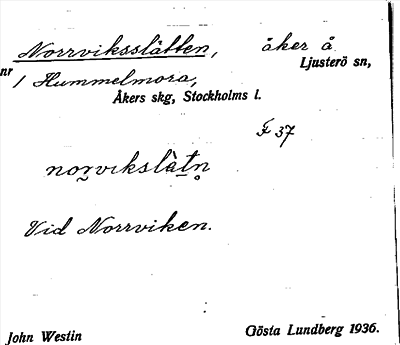 Norrviksslätten, åker å
Ljusterö sn,
nr 1 Hummelmora,
Åkers skg, Stockholms l.
F 37
norvikslàtn
Vid Norrviken.
John Westin
Gösta Lundberg 1936.